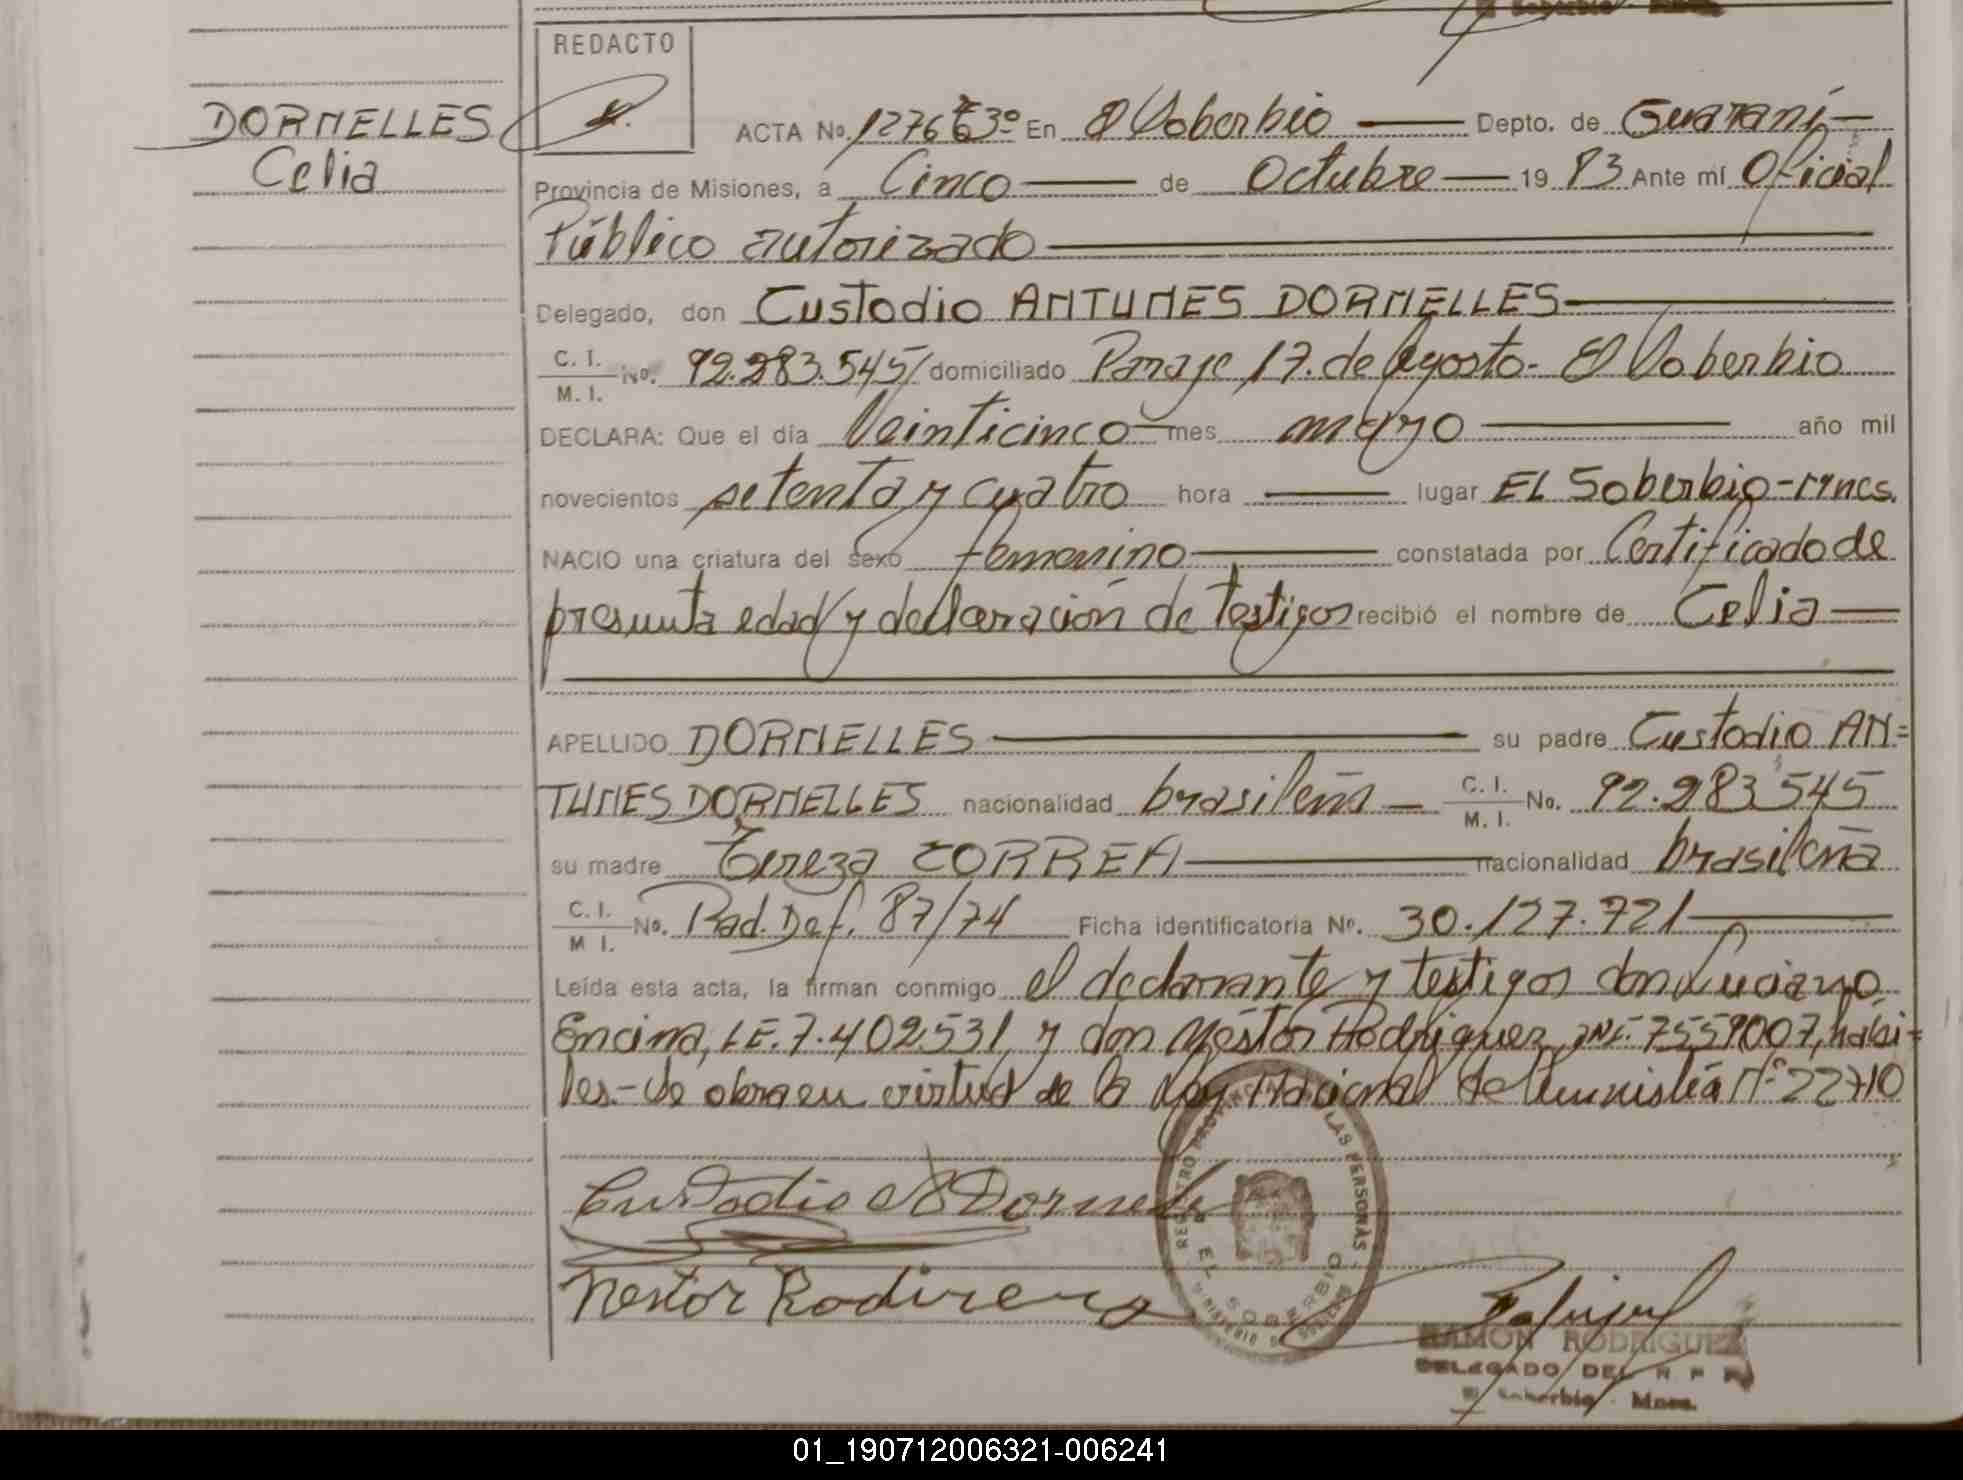 El Soberbio
REDACTO
DORNELLES
Celia
ACTA No. 1276 Tº 3º En El Soberbio Depto. de Guaraní
Provincia de Misiones, a Cinco de Octubre 1983 Ante mí Oficial
Público autorizado
Delegado, don Custodio ANTUNES DORNELLES
C. I. / M. I. No. 92.283.545/ domiciliado Paraje 17. de Agosto - El Soberbio
DECLARA: Que el día Veinticinco mes mayo año mil
novecientos setenta y cuatro hora lugar EL Soberbio - Mnes.
NACIO una criatura del sexo femenino constatada por Certificado de
presunta edad y declaración de testigos recibió el nombre de Celia
APELLIDO DORNELLES su padre Custodio AN=
TUNES DORNELLES nacionalidad brasileña C. I. / M. I. No. 92.283.545
su madre Tereza CORREA nacionalidad brasileña
C. I. / M I. No. Rad. Def. 87/74 Ficha identificatoria No. 30.127.721
Leída esta acta, la firman conmigo el declarante y testigos don Luciano
Encina, LE. 7.402531, y don Néstor Rodriguez, DNI. 7559007, hábi-
les.- Se obra en virtud de la Ley Nacional de Amnistía Nº 22710
Custodio A Dornel
Nestor Rodirens
REGISTRO PROVINCIAL DE LAS PERSONAS
EL SOBERBIO
MINISTERIO DE GOBIERNO
RAMON RODRIGUEZ
DELEGADO DEL R P P
El Soberbio - Mnes.
01_190712006321-006241